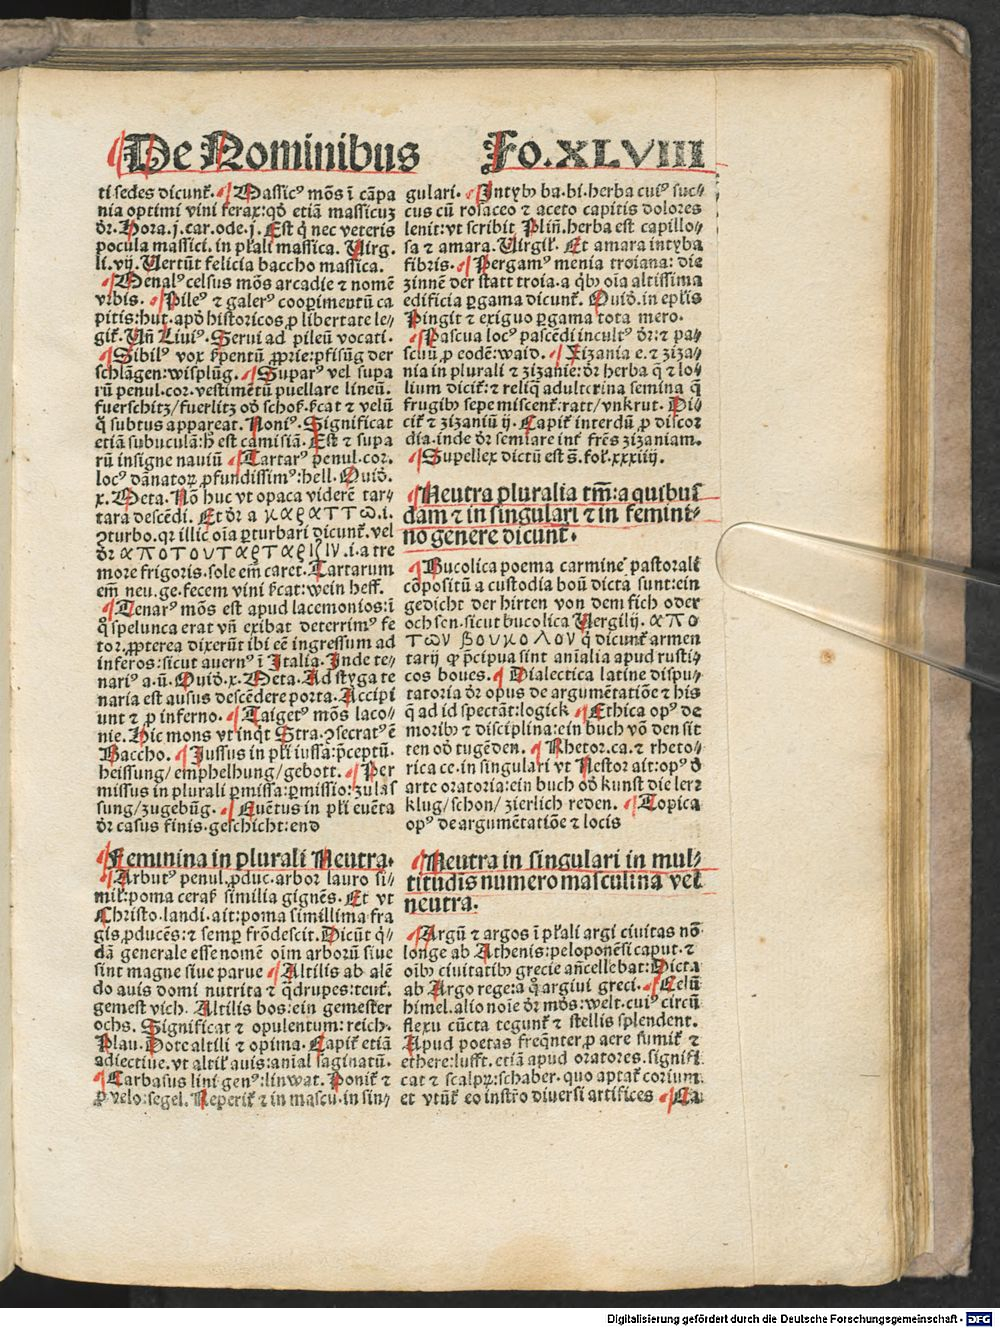 De Nominibus Fo. XLVIII
ti sedes dicunt̃. Massicꝰ mõs ĩ cãpa
nia optimi vini ferax: qđ etiã massicuʒ
đr. Hora. j. car. ode. j. Est q̃ nec veteris
pocula massici. in pl̃ali massica. Virg.
li. vij. Vertũt felicia baccho massica.
Menalꝰ celsus mõs arcadie ⁊ nomẽ
vrbis. Pileꝰ ⁊ galerꝰ cooꝑimentũ ca
pitis: hut. apđ historicos ꝓ libertate le⸗
git̃. Vñ Liuiꝰ. Serui ad pileũ vocati.
Sibilꝰ vox ẜpentũ ꝓprie: pfisũg der
schlãgen: wisplũg. Suparꝰ vel supa
rũ penul. cor. vestimẽtũ puellare lineũ.
fuerschitz/ fuerlitz ođ schoß. ẜcat ⁊ velũ
q̃ subtus appareat. Noniꝰ. Significat
etiã subuculã: h̃ est camisiã. Est ⁊ supa
rũ insigne nauiũ Tartarꝰ penul. cor.
locꝰ dãnatoꝝ ꝓfundissimꝰ: hell. Ouiđ.
x. Meta. Nõ huc vt opaca viderẽ tar⸗
tara descẽdi. Et đr a καραττω. i.
ꝯturbo. qꝛ illic oĩa ꝑturbari dicunt̃. vel
đr απο του ταρταριζιν. i. a tre
more frigoris. sole em̃ caret. Tartarum
em̃ neu. ge. fecem vini ẜcat: wein heff.
Tenarꝰ mõs est apud lacemonios: ĩ
q̊ spelunca erat vñ exibat deterrimꝰ fe
tor. ꝓpterea dixerũt ibi eẽ ingressum ad
inferos: sicut auernꝰ ĩ Italia. Inde te⸗
nariꝰ a. ũ. Ouiđ. x. Meta. Ad styga te
naria est ausus descẽdere porta. Accipi
unt ⁊ ꝓ inferno. Taigetꝰ mõs laco⸗
nie. Hic mons vt inq̃t Stra. ꝯsecratꝰ ẽ
Baccho. Jussus in pl̃i iussa: p̃ceptũ.
heissung/ emphelhung/ gebott. Per
missus in plurali ꝑmissa: ꝑmissio: zulas
sung/ zugebũg. Euẽtus in pl̃i euẽta
đr casus finis. geschicht: end
Feminina in plurali Neutra.
Arbutꝰ penul. ꝓduc. arbor lauro si⸗
mil̃: poma ceras̃ similia gignẽs. Et vt
Christo. landi. ait: poma simillima fra
gis ꝓducẽs: ⁊ semꝑ frõdescit. Dicũt q̃⸗
dã generale esse nomẽ oĩm arborũ siue
sint magne siue parue Altilis ab alẽ
do auis domi nutrita ⁊ q̃drupes: teut̃.
gemest vich. Altilis bos: ein gemester
ochs. Significat ⁊ opulentum: reich.
Plau. Dote altili ⁊ opima. Capit̃ etiã
adiectiue. vt altil̃ auis: aĩal saginatũ.
Carbasus lini genꝰ: linwat. Ponit̃ ⁊
ꝓ velo: segel. Reperit̃ ⁊ in mascu. in sin⸗
gulari. Intybꝰ ba. bi. herba cuiꝰ suc⸗
cus cũ rosaceo ⁊ aceto capitis dolores
lenit: vt scribit Plin̄. herba est capillo⸗
sa ⁊ amara. Virgil̃. Et amara intyba
fibris. Pergamꝰ menia troiana: die
zinnẽ der statt troia. a q̃bꝰ oĩa altissima
edificia ꝑgama dicunt̃. Ouiđ. in epl̃is
Pingit ⁊ exiguo ꝑgama tota mero.
Pascua locꝰ pascẽdi incultꝰ đr: ⁊ pa⸗
scuũ ꝓ eodẽ: waid. Zizania e. ⁊ ziza⸗
nia in plurali ⁊ zizanie: đr herba q̃ ⁊ lo⸗
lium dicit̃: ⁊ reliq̃ adulterina semina q̃
frugibꝰ sepe miscent̃: ratt/ vnkrut. Di⸗
cit̃ ⁊ zizaniũ ij. Capit̃ interdũ ꝓ discor
dia. inde đr semiare int̃ fr̃es zizaniam.
Supellex dictũ est s̃. fol̃. xxxiiij.
Neutra pluralia tm̃: a quibus
dam ⁊ in singulari ⁊ in femini⸗
no genere dicunt̃.
Bucolica poema carmine pastorali
cõpositũ a custodia boũ dicta sunt: ein
gedicht der hirten von dem fich oder
ochsen. sicut bucolica Vergilij. απο
των βουκολον q̃ dicunt̃ armen
tarij qꝛ p̃cipua sint aĩalia apud rusti⸗
cos boues. Dialectica latine dispu⸗
tatoria đr opus de argumẽtatiõe ⁊ his
q̃ ad id spectãt: logick Ethica opꝰ de
moribꝰ ⁊ disciplina: ein buch võ den sit
ten ođ tugẽden. Rhetor. ca. ⁊ rheto⸗
rica ce. in singulari vt Nestor ait: opꝰ đ
arte oratoria: ein buch ođ kunst die lerꝛ
klug/ schon/ zierlich reden. Topica
opꝰ de argumẽtatiõe ⁊ locis
Neutra in singulari in mul⸗
titudis numero masculina vel
neutra.
Argũ ⁊ argos ĩ pl̃ali argi ciuitas nõ
longe ab Athenis: peloponẽsi caput. ⁊
oĩbꝰ ciuitatibꝰ grecie añcellebat: Dicta
ab Argo rege: a q̊ argiui greci. Celũ
himel. alio noĩe đr mõs: welt. cuiꝰ circũ
flexu cũcta tegunt̃ ⁊ stellis splendent.
Apud poetas freq̃nter ꝓ aere sumit̃ ⁊
ethere: lufft. etiã apud oratores. signifi
cat ⁊ scalpꝝ: schaber. quo aptat̃ corium.
et vtũt̃ eo instr̃o diuersi artifices Ca
Digitalisierung gefördert durch die Deutsche Forschungsgemeinschaft - DFG